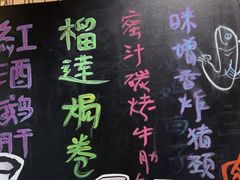 味噌香炸豬頸
蜜汁碳烤牛肋
榴槤焗卷
紅酒鵝肝